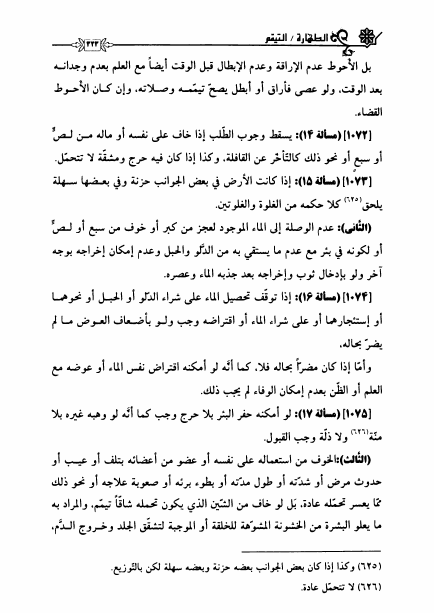 الطهارة / التيمّم
٣٢٣
بل الأحوط عدم الإراقة وعدم الإبطال قبل الوقت أيضاً مع العلم بعدم وجدانه
بعد الوقت، ولو عصى فأراق أو أبطل يصحّ تيمّمه وصلاته، وإن كان الأحوط
القضاء.
[١٠٧٢] (مسألة ١٤): يسقط وجوب الطّلب إذا خاف على نفسه أو ماله من لصٍّ
أو سبع أو نحو ذلك كالتأخّر عن القافلة، وكذا إذا كان فيه حرج ومشقّة لا تتحمل.
[١٠٧٣] (مسألة ١٥): إذا كانت الأرض في بعض الجوانب حزنة وفي بعضها سهلة
يلحق(٦٢٥) كلا حكمه من الغلوة والغلوتين.
(الثّاني): عدم الوصلة إلى الماء الموجود لعجز من كبر أو خوف من سبع أو لصٍّ
أو لكونه في بئر مع عدم ما يستقي به من الدّلو والحبل وعدم إمكان إخراجه بوجه
آخر ولو بإدخال ثوب وإخراجه بعد جذبه الماء وعصره.
[١٠٧٤] (مسألة ١٦): إذا توقّف تحصيل الماء على شراء الدّلو أو الحبل أو نحوهما
أو إستئجارهما أو على شراء الماء أو اقتراضه وجب ولو بأضعاف العوض ما لم
يضرّ بحاله.
وأمّا إذا كان مضرّاً بحاله فلا، كما أنّه لو أمكنه اقتراض نفس الماء أو عوضه مع
العلم أو الظّن بعدم إمكان الوفاء لم يجب ذلك.
[١٠٧٥] (مسألة ١٧): لو أمكنه حفر البئر بلا حرج وجب كما أنّه لو وهبه غيره بلا
منّة(٦٢٦) ولا ذلّة وجب القبول.
(الثّالث): الخوف من استعماله على نفسه أو عضو من أعضائه بتلف أو عيب أو
حدوث مرض أو شدّته أو طول مدّته أو بطوء برئه أو صعوبة علاجه أو نحو ذلك
ممّا يعسر تحمّله عادة، بَل لو خاف من الشّين الذي يكون تحمله شاقّاً تيمّم، والمراد به
ما يعلو البشرة من الخشونة المشوّهة للخلقة أو الموجبة لتشقّق الجلد وخروج الدّم،
(٦٢٥) وكذا إذا كان بعض الجوانب بعضه حزنة وبعضه سهلة لكن بالتّوزيع.
(٦٢٦) لا تتحمّل عادة.